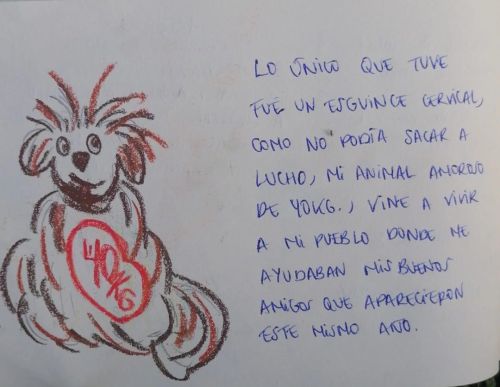 40KG
LO ÚNICO QUE TUVE
FUE UN ESGUINCE CERVICAL,
COMO NO PODÍA SACAR A
LUCHO, MI ANIMAL AMOROSO
DE 40KG., VINE A VIVIR
A MI PUEBLO DONDE ME
AYUDABAN MIS BUENOS
AMIGOS QUE APARECIERON
ESTE MISMO AÑO.